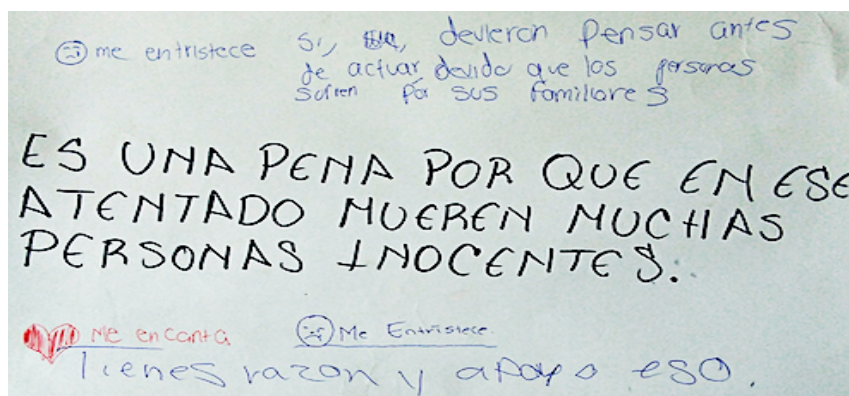 me entristece
si, devieron pensar antes
de actuar devido que los personas
sufren por sus familiares
ES UNA PENA POR QUE EN ESE
ATENTADO MUEREN MUCHAS
PERSONAS INOCENTES.
Me encanta
Me Entristece.
Tienes razon y apoyo eso.